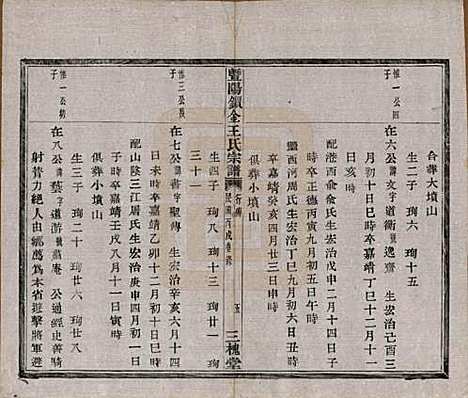 合葬大墳山
生二子 珣六 珣十五
惟一公四子
在六公諱文字道衡號逸齋 生宏治己酉三
月初十日巳時卒嘉靖丁巳十二月十一
時配西兪兪氏生宏治十二月十四日子
時卒正德丙寅九月初五日午時
繼西河周氏生宏治九月初六日丑時
卒嘉靖癸亥四月廿三日寅時
俱葬小墳山
豐陽鎖金王氏宗譜
五
三槐堂
惟三公長子
在七公諱書字聖傳 生宏治辛亥六月十四
日未時卒嘉靖乙卯十二月十九日子時
配山陰三江周氏生宏治庚申四月初一日
子時卒嘉靖壬戌八月十一日寅時
俱葬小墳山
生四子 珣十三 珣廿一 珣
三十一
惟一公幼子
在八公諱藝字道游號萬菴 公通經史善騎
射膂力絕人由經薦爲本省遊擊將軍避
生三子 珣二十 珣廿六 珣廿八